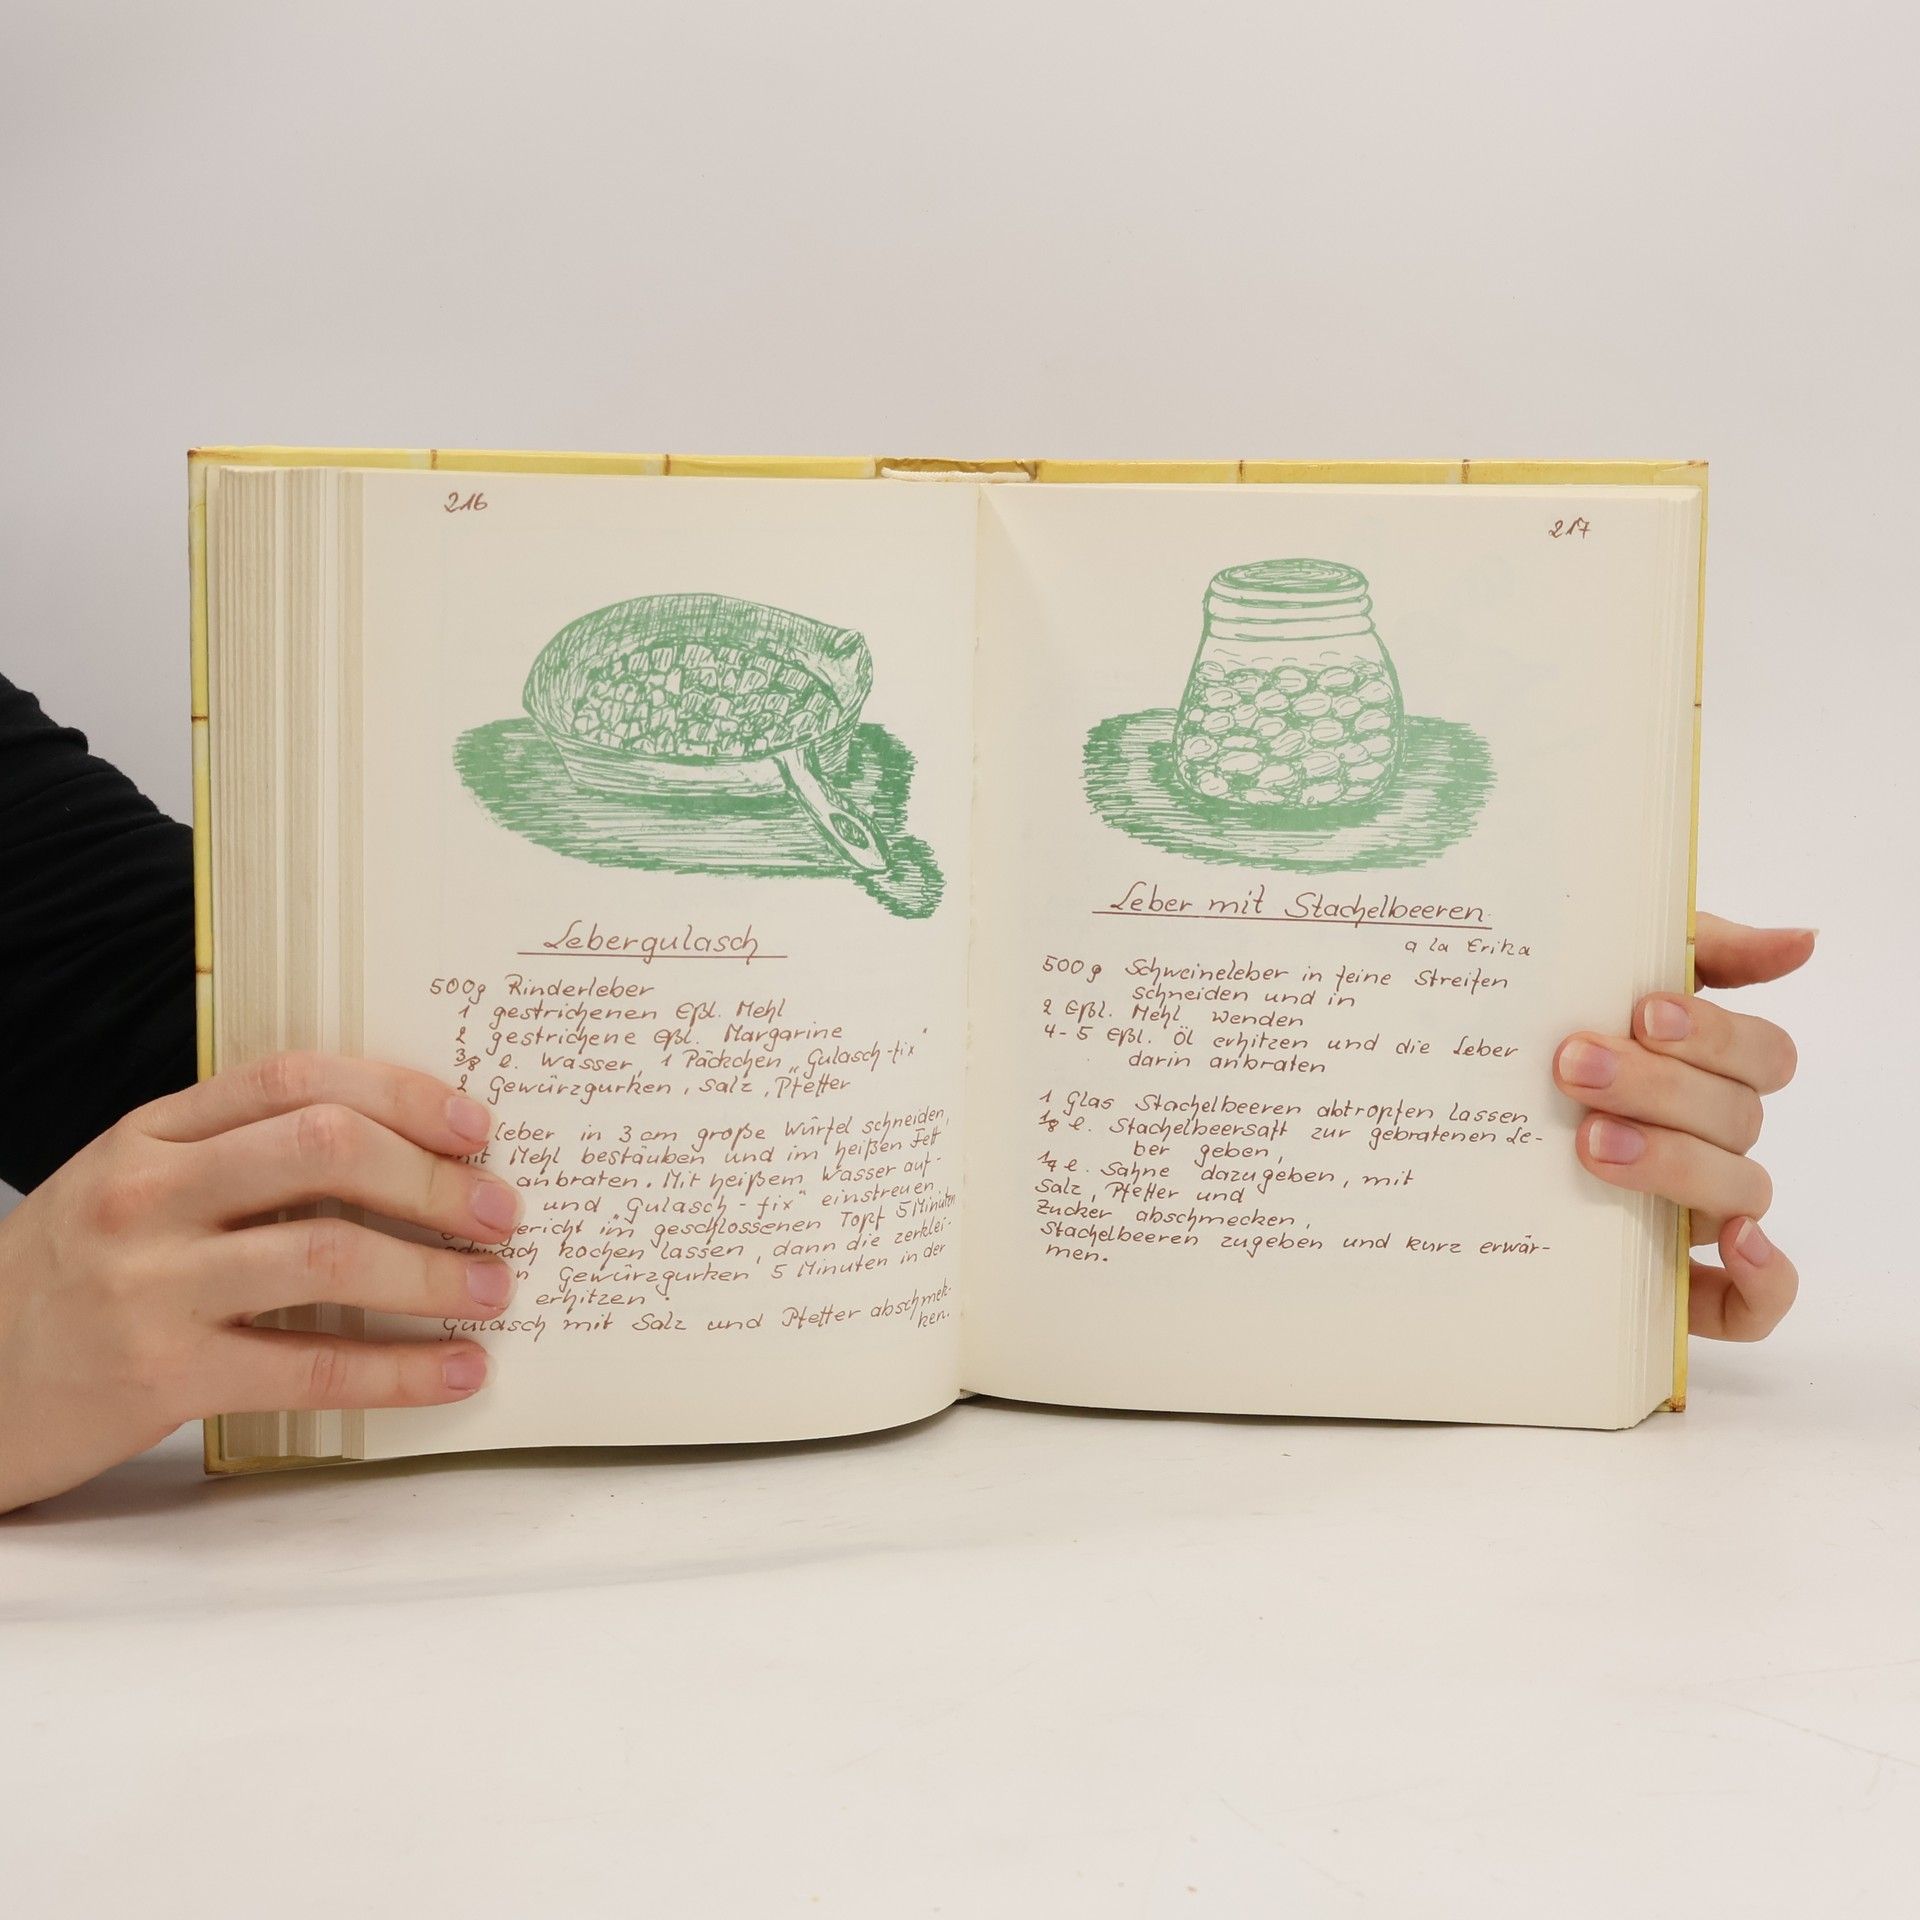 216
Lebergulasch
500g Rinderleber
1 gestrichenen Eßl. Mehl
2 gestrichene Eßl. Margarine
3/8 l. Wasser, 1 Päckchen „Gulasch-fix"
2 Gewürzgurken, Salz, Pfeffer
Leber in 3 cm große Würfel schneiden,
mit Mehl bestäuben und im heißen Fett
anbraten. Mit heißem Wasser auf-
und „Gulasch-fix" einstreuen.
im geschlossenen Topf 5 Minuten
kochen lassen, dann die zerklei-
Gewürzgurken 5 Minuten in der
erhitzen.
Gulasch mit Salz und Pfeffer abschmek-
ken.
217
Leber mit Stachelbeeren
a la Erika
500g Schweineleber in feine Streifen
schneiden und in
2 Eßl. Mehl wenden
4-5 Eßl. Öl erhitzen und die Leber
darin anbraten
1 Glas Stachelbeeren abtropfen lassen
1/8 l. Stachelbeersaft zur gebratenen Le-
ber geben,
1/4 l. Sahne dazugeben, mit
Salz, Pfeffer und
Zucker abschmecken,
Stachelbeeren zugeben und kurz erwär-
men.